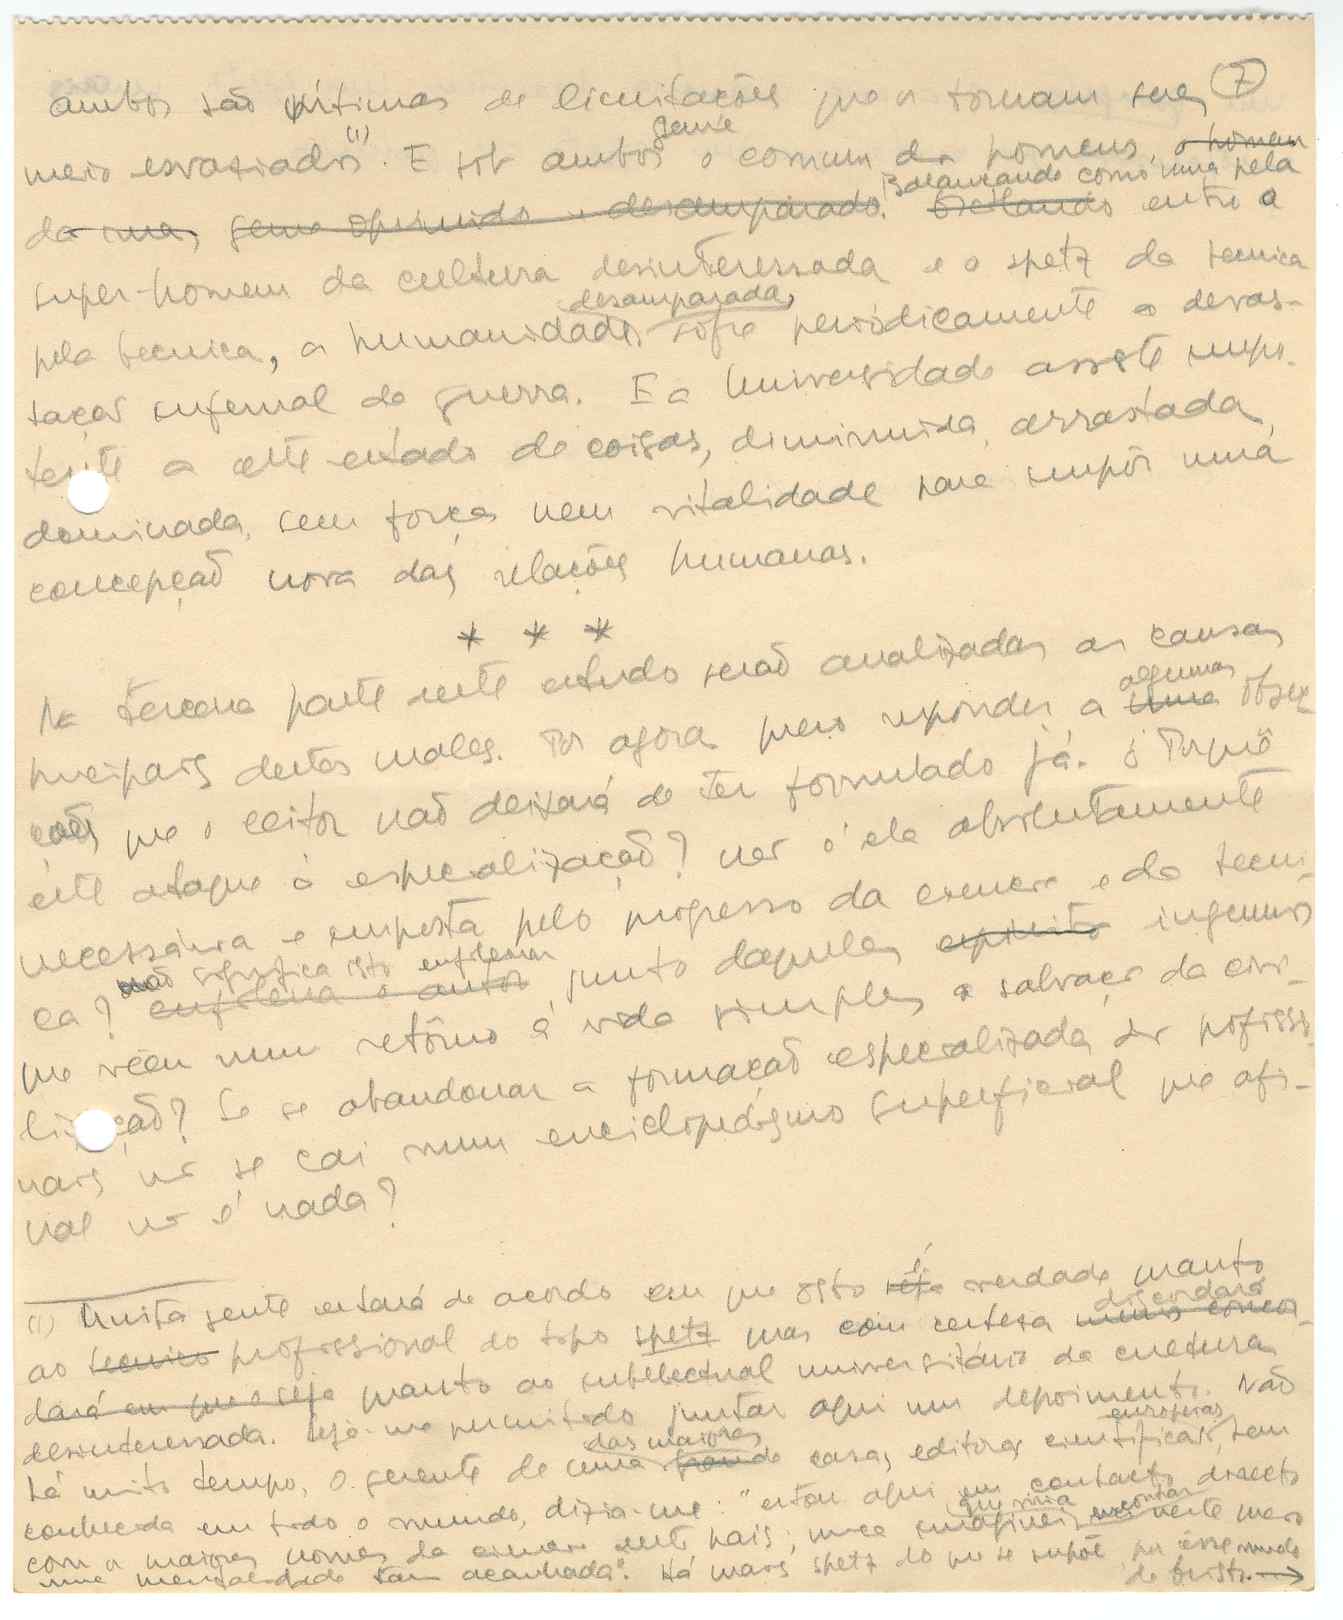 7
ambos são vítimas de limitações que os tornam seres
meio esvasiados (1). E sob ambos geme o comum dos homens, o homem
da rua, geme oprimido e desamparado. Balanceando como uma pela Oscilando entre o
super-homem da cultura desinteressada e o spetz da tecnica
pela tecnica, a humanidade, desamparada, sofre periòdicamente a devas-
tação infernal da guerra. E a Universidade assiste impo-
tente a este estado de coisas, diminuida, arrastada,
dominada, sem força nem vitalidade para impôr uma
concepção nova das relações humanas.
* * *
Na terceira parte deste estudo serão analizadas as causas
principais destes males. Por agora quero responder a algumas uma objec
ções que o leitor não deixará de ter formulado já. Porquê
este ataque à especialização? não é ela absolutamente
necessária e imposta pelo progresso da ciencia e da tecni
ca? não significa isto enfileirar enfileira o autor junto daqueles espirito ingenuos
que vêem num retôrno à vida simples a salvação da civi-
lização? Se se abandonar a formação especializada dos profissio
nais, não se cai num enciclopedismo superficial que afi-
nal não é nada?
(1) Muita gente estará de acordo em que isto seja é verdade quanto
ao tecnico profissional do tipo spetz mas com certeza discordará menos concor-
dará em que o seja quanto ao intelectual universitário da cultura
desinteressada. Seja-me permitido juntar aqui um depoimento. Não
há muito tempo, o gerente de uma das maiores grande casas editoras cientificas europeias, bem
conhecida em todo o mundo, dizia-me: "estou aqui em contacto directo
com os maiores nomes da ciencia deste pais; nunca imaginei que viria encontrar neste meio
uma mentalidade tam acanhada". Há mais spetz do que se supõe por êsse mundo
de Cristo. →